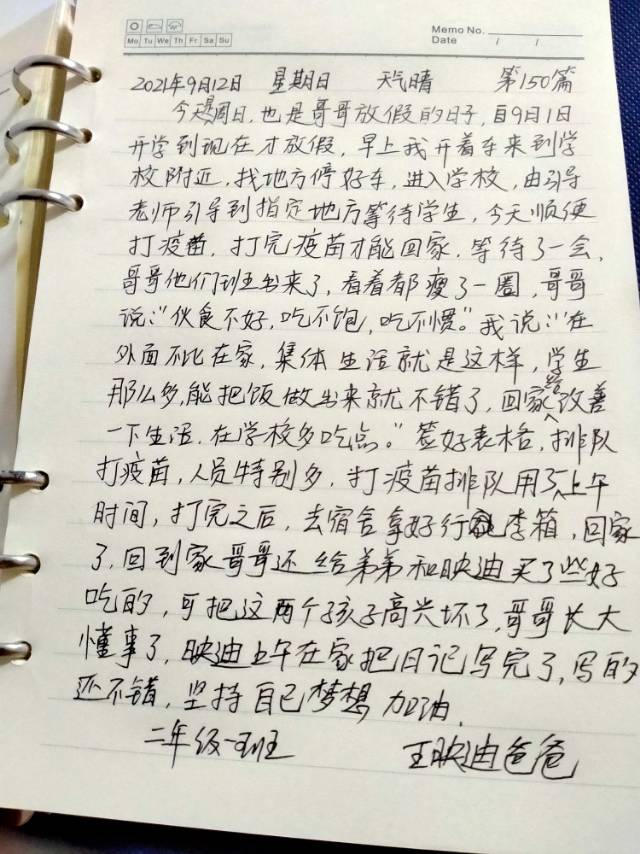 Memo No.
Mo Tu We Th Fr Sa Su
Date / /
2021年9月12日 星期日 天气晴 第150篇
今天是周日,也是哥哥放假的日子,自9月1日
开学到现在才放假,早上我开着车来到学
校附近,找地方停好车,进入学校,由引导
老师引导到指定地方等待学生,今天顺便
打疫苗,打完疫苗才能回家.等待了一会,
哥哥他们班出来了,看着都瘦了一圈,哥哥
说:“伙食不好,吃不饱,吃不惯。”我说:“在
外面不比在家,集体生活就是这样,学生
那么多,能把饭做出来就不错了,回家给改善
一下生活.在学校多吃点。”签好表格,排队
打疫苗,人员特别多,打疫苗排队用了一上午
时间,打完之后,去宿舍拿好行李箱,回家
了.回到家哥哥还给弟弟和映迪买了些好
吃的,可把这两个孩子高兴坏了,哥哥长大
懂事了,映迪上午在家把日记写完了,写的
还不错,坚持自己梦想加油.
二年级一班 王映迪爸爸